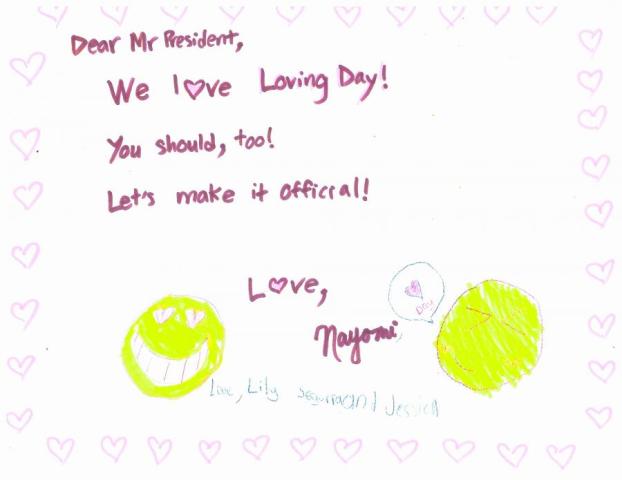 Dear Mr President,
We love Loving Day!
You should, too!
Let's make it official!
Love,
Day
Nayomi
Love, Lily and Jessica